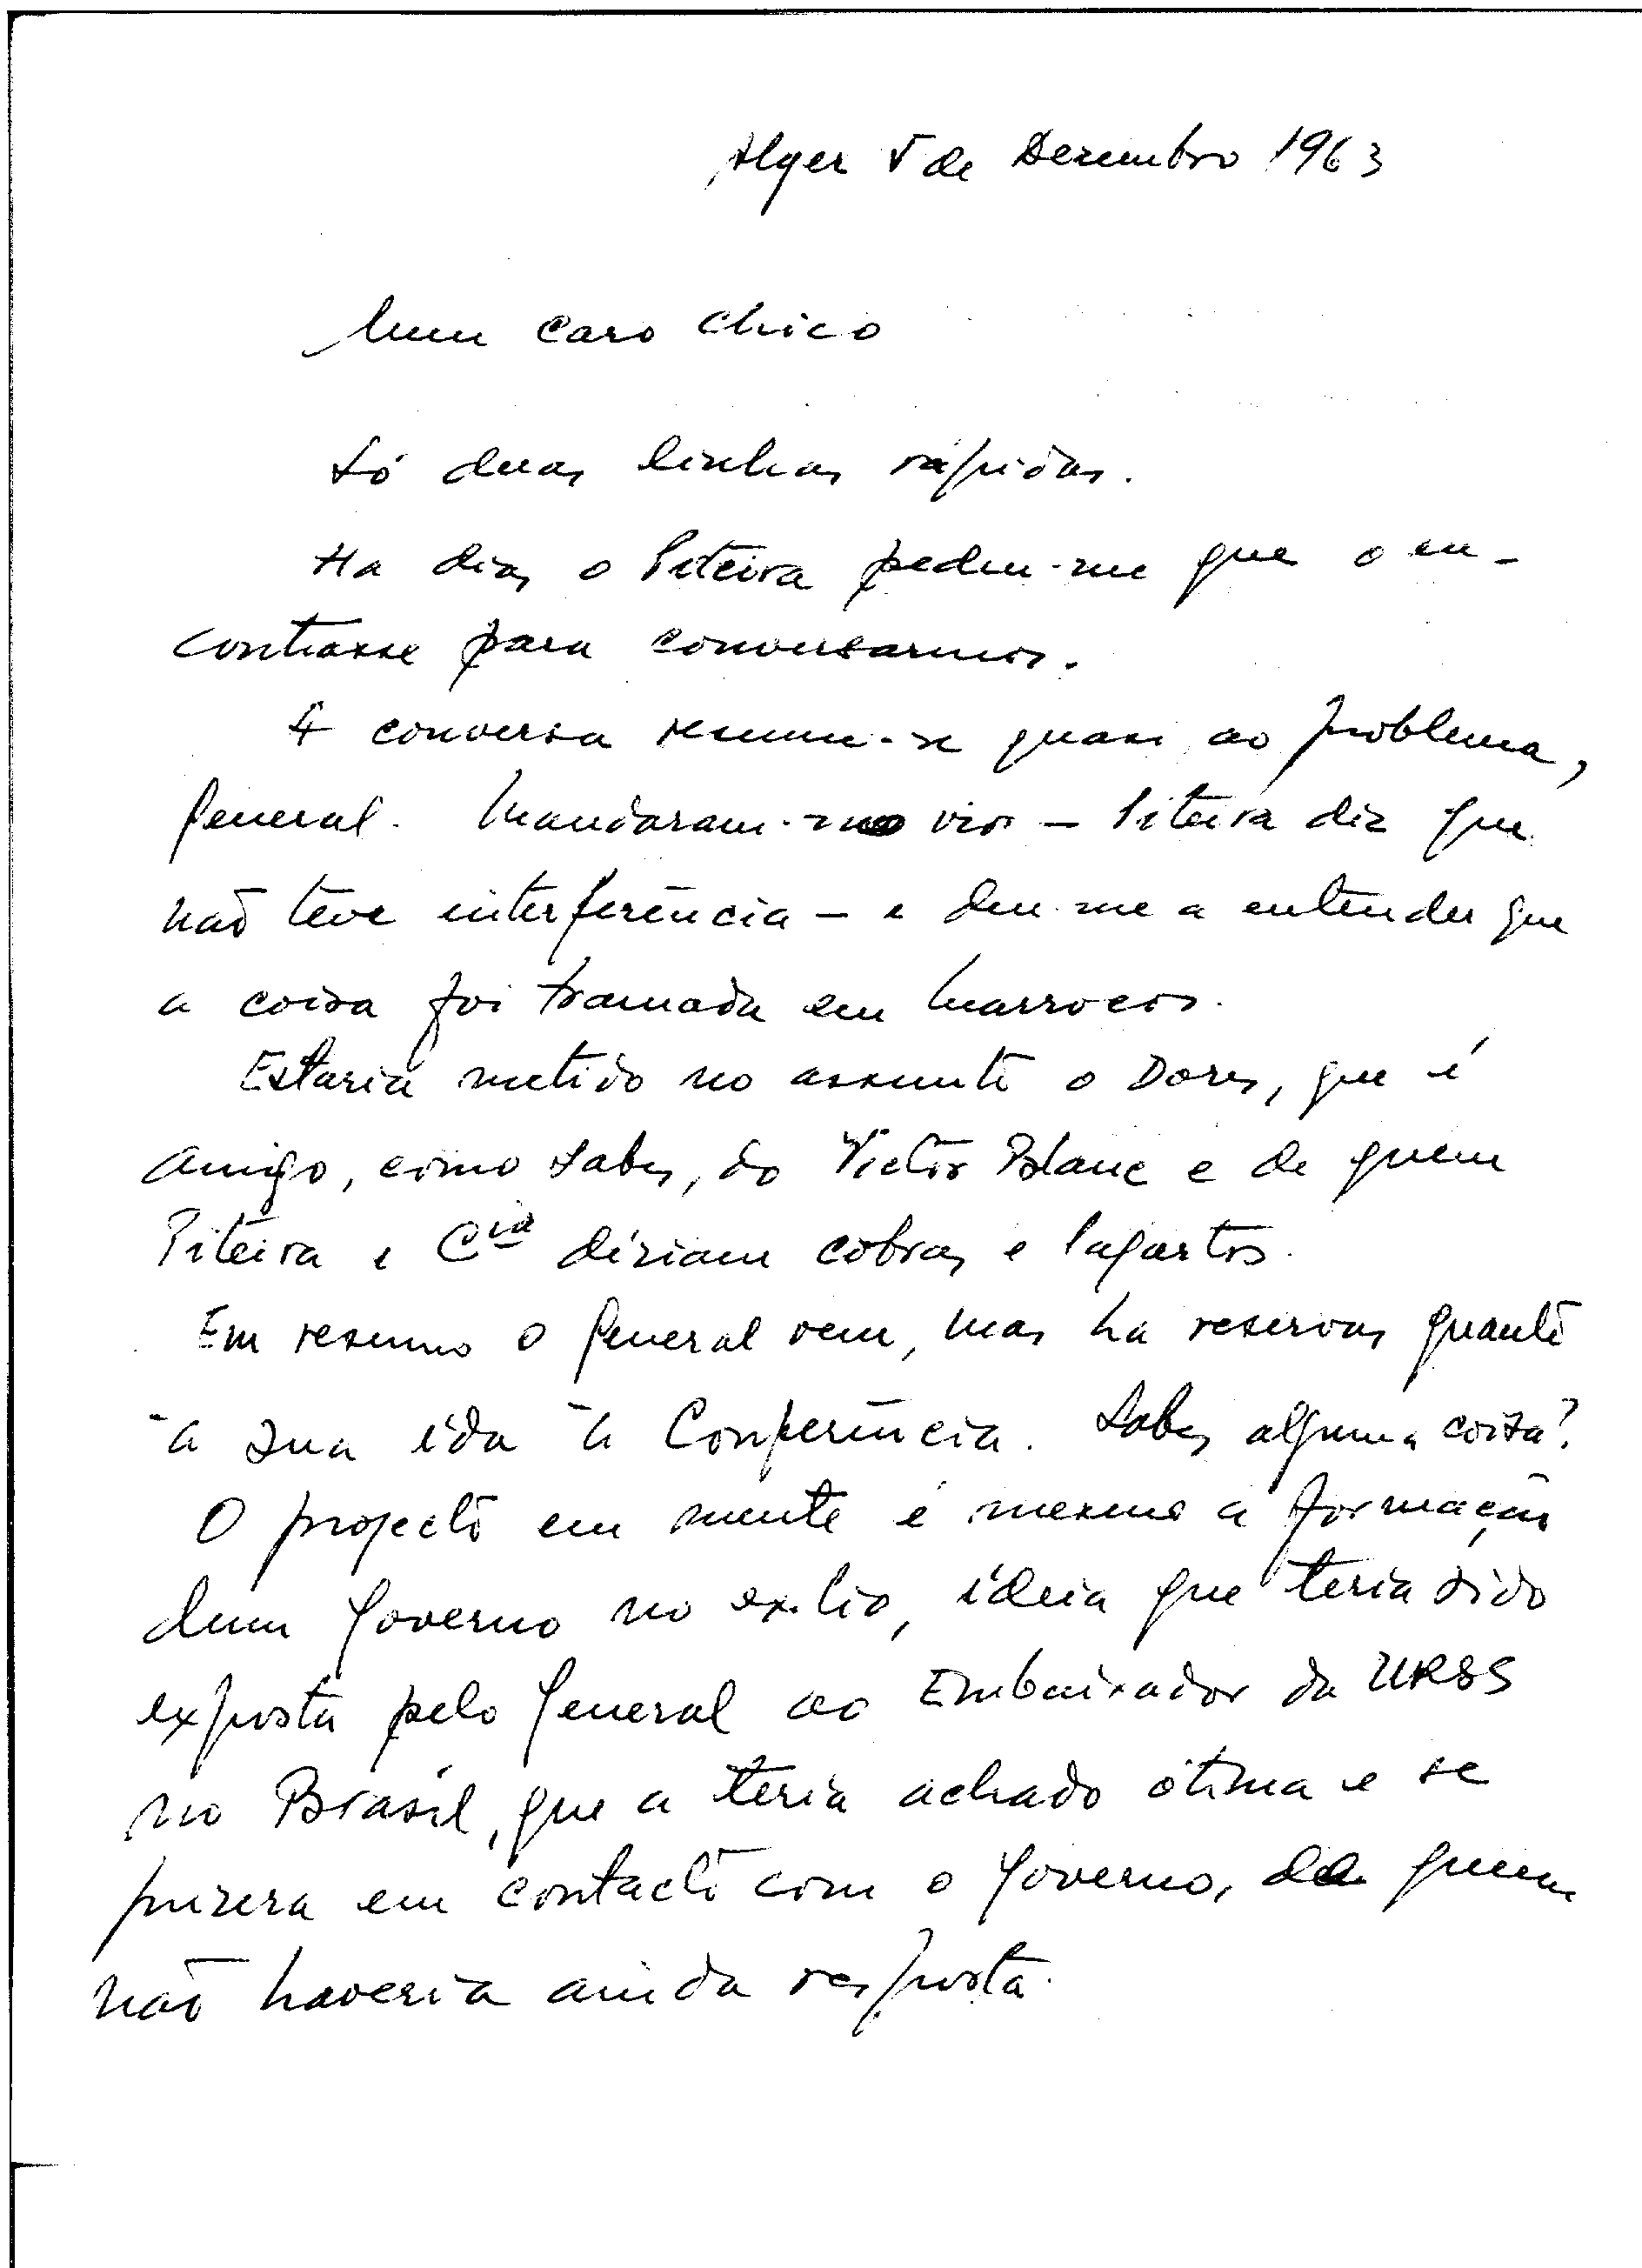 Alger 5 de Dezembro 1963
Meu caro Chico
Só duas linhas rápidas.
Ha dias o Piteira pediu-me que o en-
contrasse para conversarmos.
A conversa resume-se quasi ao problema,
General. Mandaram-no vir – Piteira diz que
não teve interferência – e deu-me a entender que
a coisa foi tramada em Marrocos.
Estaria metido no assunto o Dores, que é
amigo, como sabes, do Victor Blanc e de quem
Piteira e Cia diziam cobras e lagartos.
Em resumo o General vem, mas ha reservas quanto
à sua ida à Conferência. Sabes alguma coisa?
O projecto em mente é mesmo a formação
dum Governo no exilio, ideia que teria sido
exposta pelo General ao Embaixador da URSS
no Brasil, que a teria achado ótima e se
puzera em contacto com o Governo, de quem
não haveria ainda resposta.